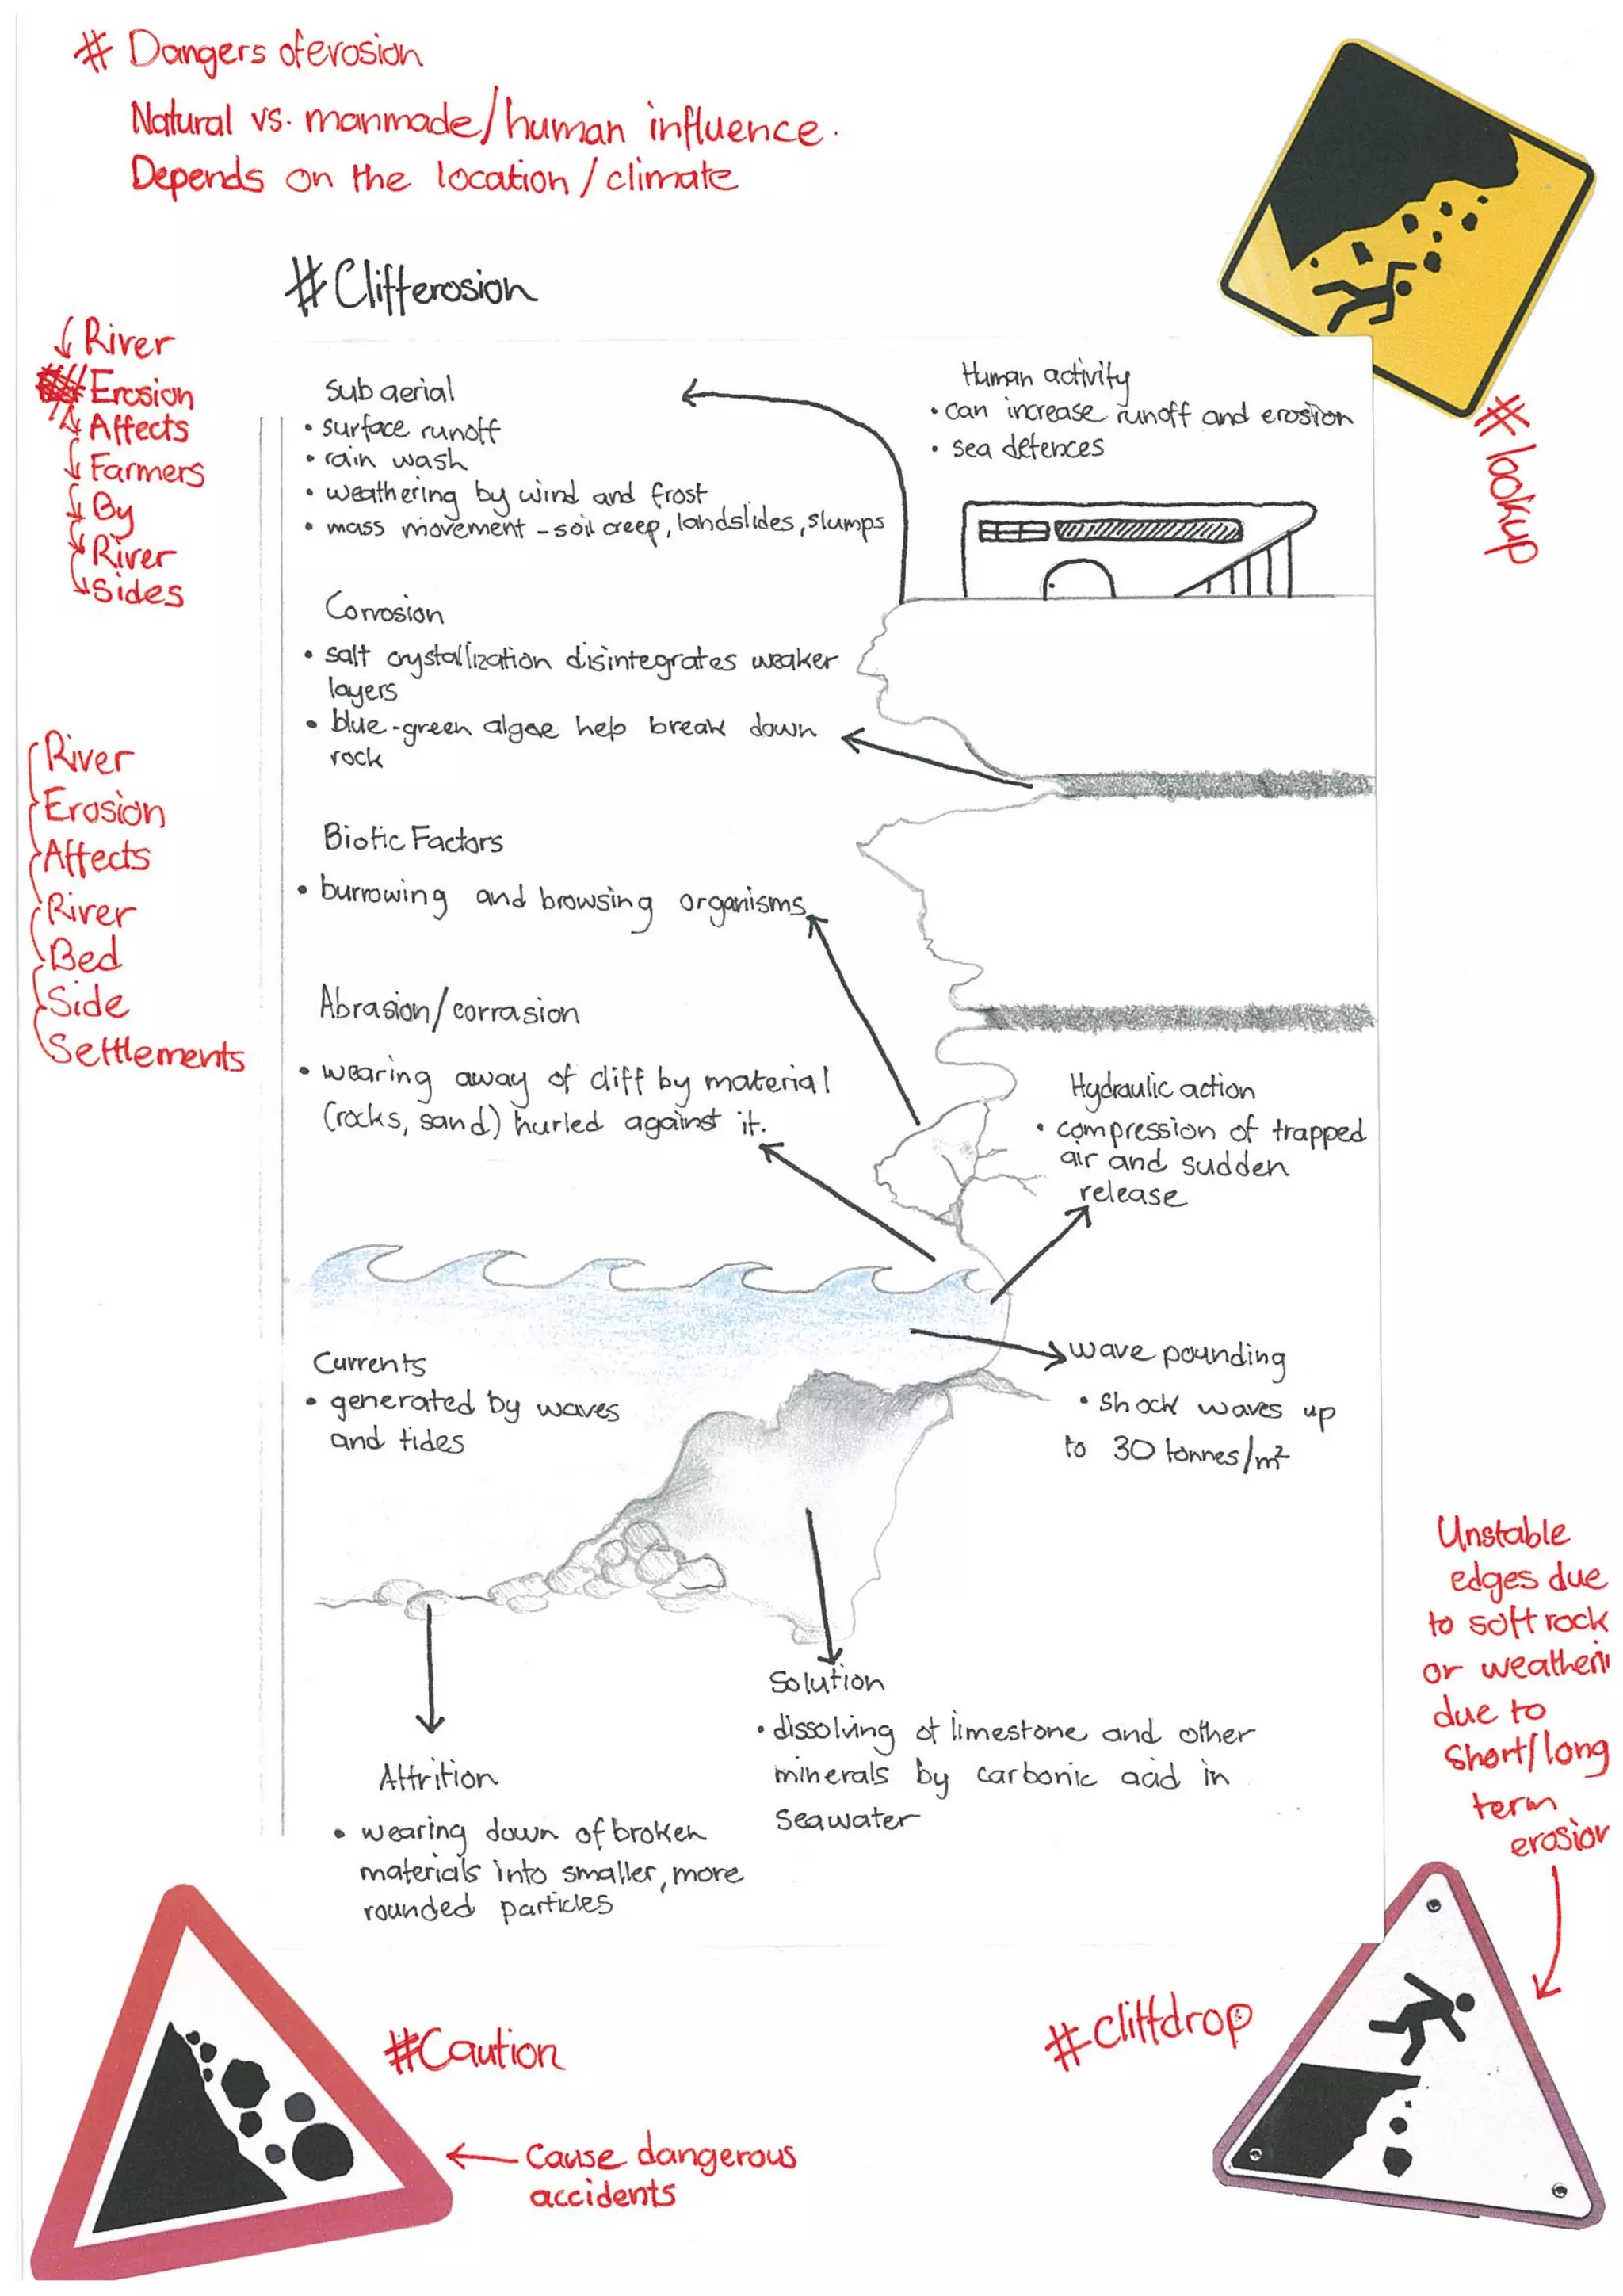 # Dangers of erosion
Natural vs. manmade/human influence.
Depends on the location/climate
#Clifferosion
River
Erosion
Affects
Farmers
By
River
Sides
River
Erosion
Affects
River
Bed
Side
Settlements
Sub aerial
• surface runoff
• rain wash
• weathering by wind and frost
• mass movement - soil creep, landslides, slumps
Human activity
• can increase runoff and erosion
• sea defences
#lookup
Corrosion
• salt crystallization disintegrates weaker
layers
• blue-green algae help break down
rock
Biotic Factors
• burrowing and browsing organisms
Abrasion/corrasion
• wearing away of cliff by material
(rocks, sand) hurled against it.
Hydraulic action
• compression of trapped
air and sudden
release
Currents
• generated by waves
and tides
wave pounding
• shock waves up
to 30 tonnes/m²
Solution
• dissolving of limestone and other
minerals by carbonic acid in
seawater
Attrition
• wearing down of broken
materials into smaller, more
rounded particles
Unstable
edges due
to soft rock
or weatheri
due to
Short/long
term
erosion
#Caution
Cause dangerous
accidents
#cliffdrop